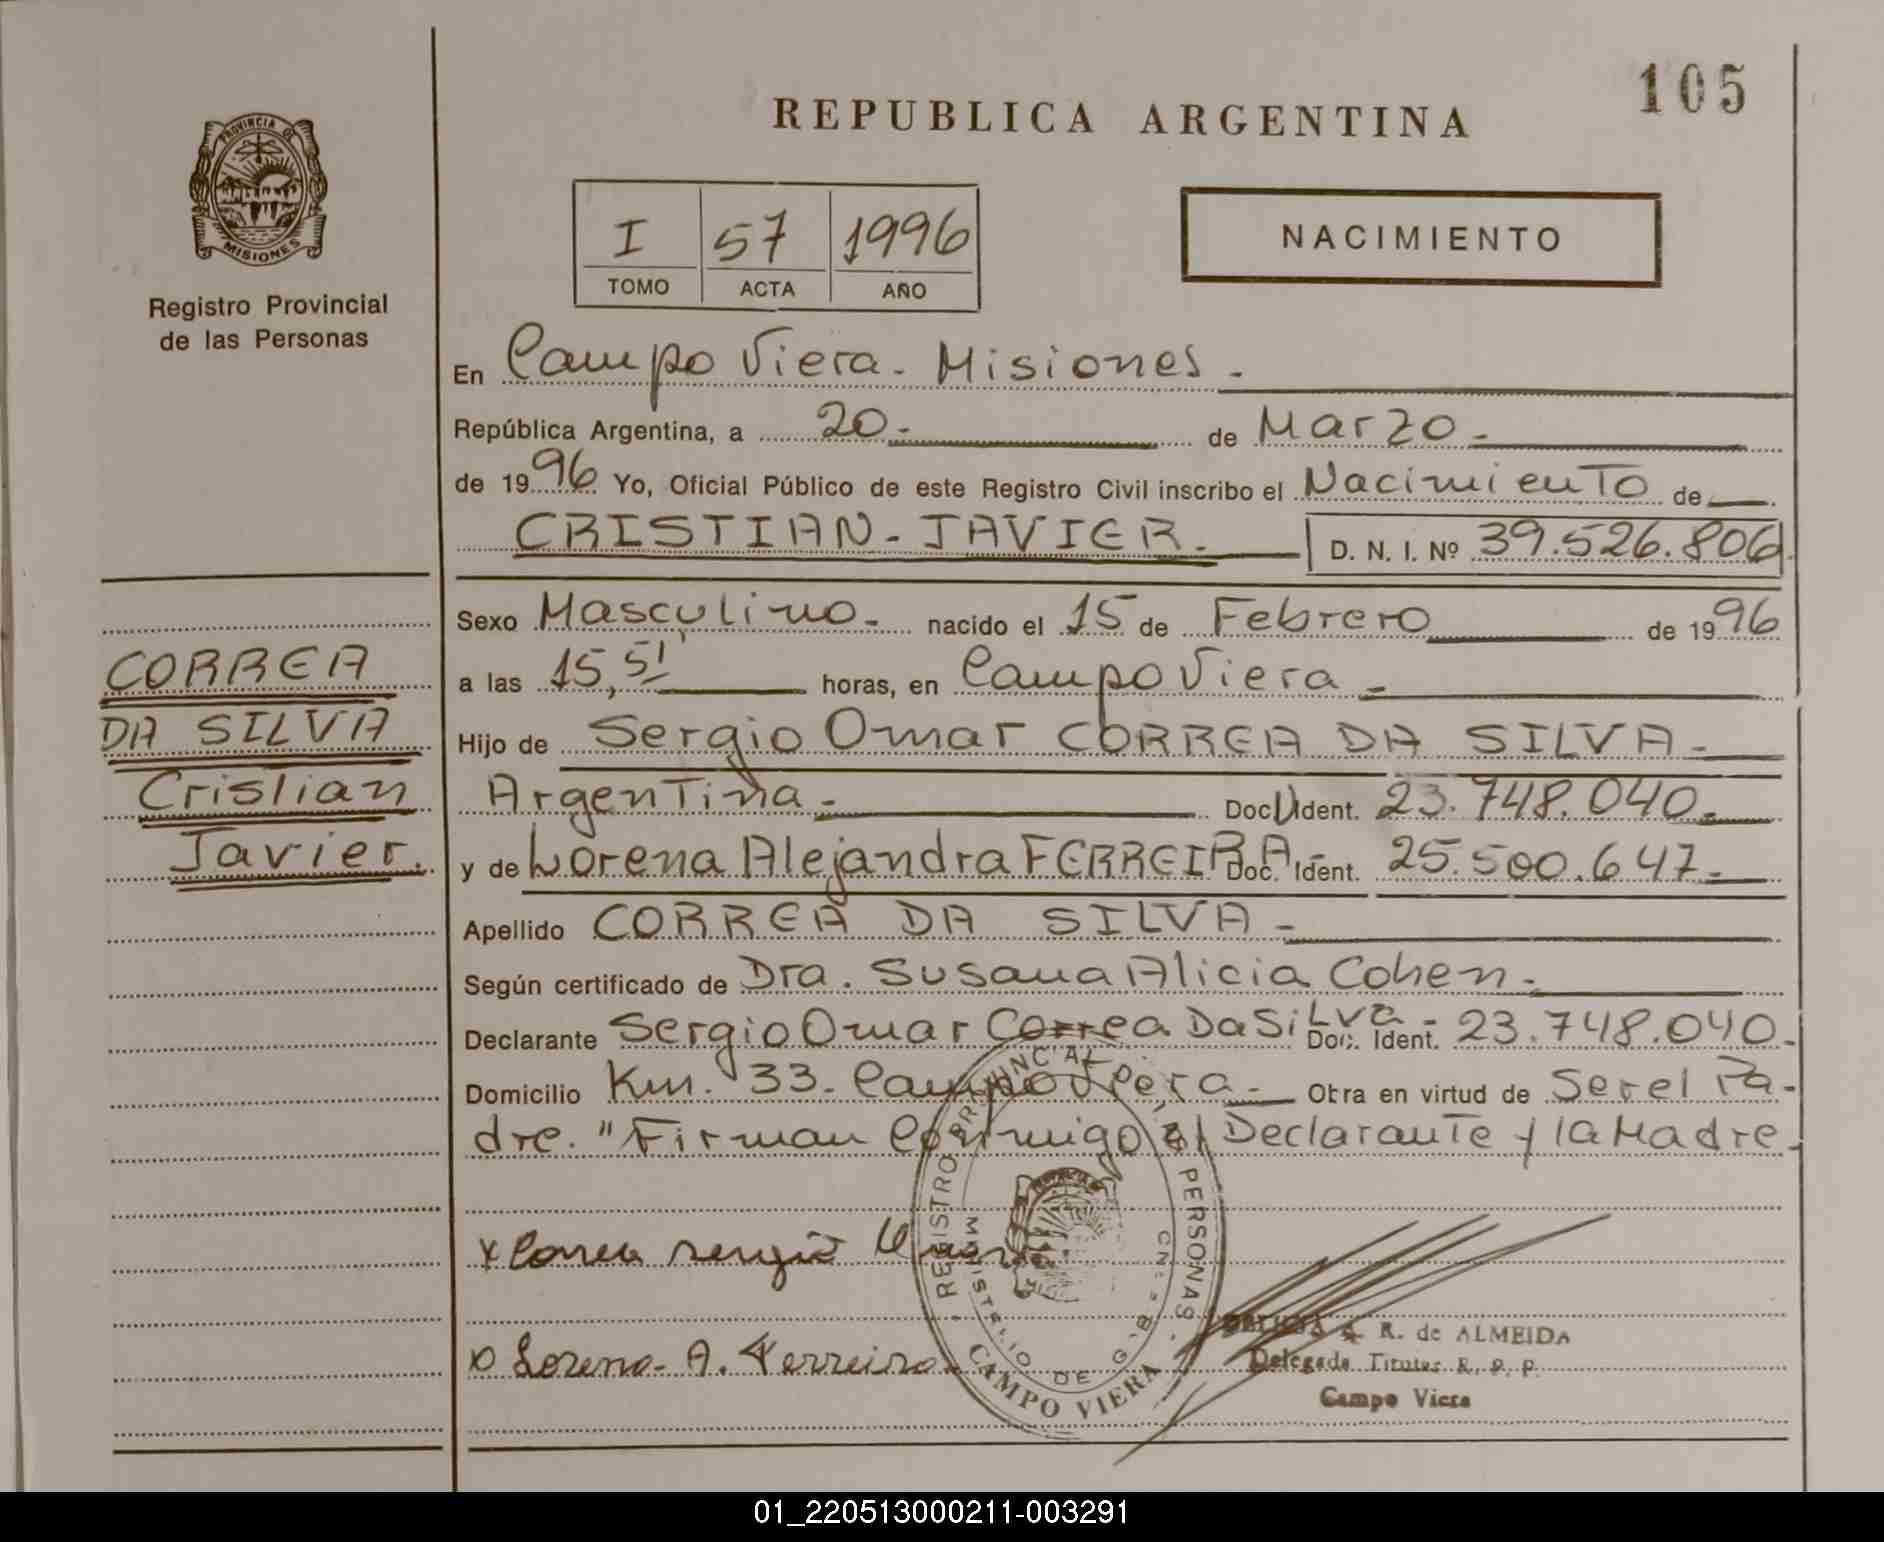 105
REPUBLICA ARGENTINA
PROVINCIA DE
MISIONES
Registro Provincial
de las Personas
I 57 1996
TOMO ACTA AÑO
NACIMIENTO
En Campo Viera. Misiones.
República Argentina, a 20. de Marzo.
de 1996 Yo, Oficial Público de este Registro Civil inscribo el Nacimiento de
CRISTIAN-JAVIER. D. N. I. Nº 39.526.806
Sexo Masculino. nacido el 15 de Febrero de 1996
a las 15,51' horas, en Campo Viera
Hijo de Sergio Omar CORREA DA SILVA.
Argentina. Doc. Ident. 23.748.040.
y de Lorena Alejandra FERREIRA Doc. Ident. 25.500.647.
Apellido CORREA DA SILVA
Según certificado de Dra. Susana Alicia Cohen.
Declarante Sergio Omar Correa Da Silva Doc. Ident. 23.748.040.
Domicilio Km. 33. Campo Viera Obra en virtud de Ser el Pa-
dre. "Firman Conmigo el Declarante y la Madre.
CORREA
DA SILVA
Cristian
Javier.
x Correa sergio Omar
x Lorena A. Ferreira
REGISTRO PROVINCIAL PERSONAS
MINISTERIO DE
CAMPO VIERA
R. de ALMEIDA
Delegada Titular R. P. P.
Campo Viera
01_220513000211-003291